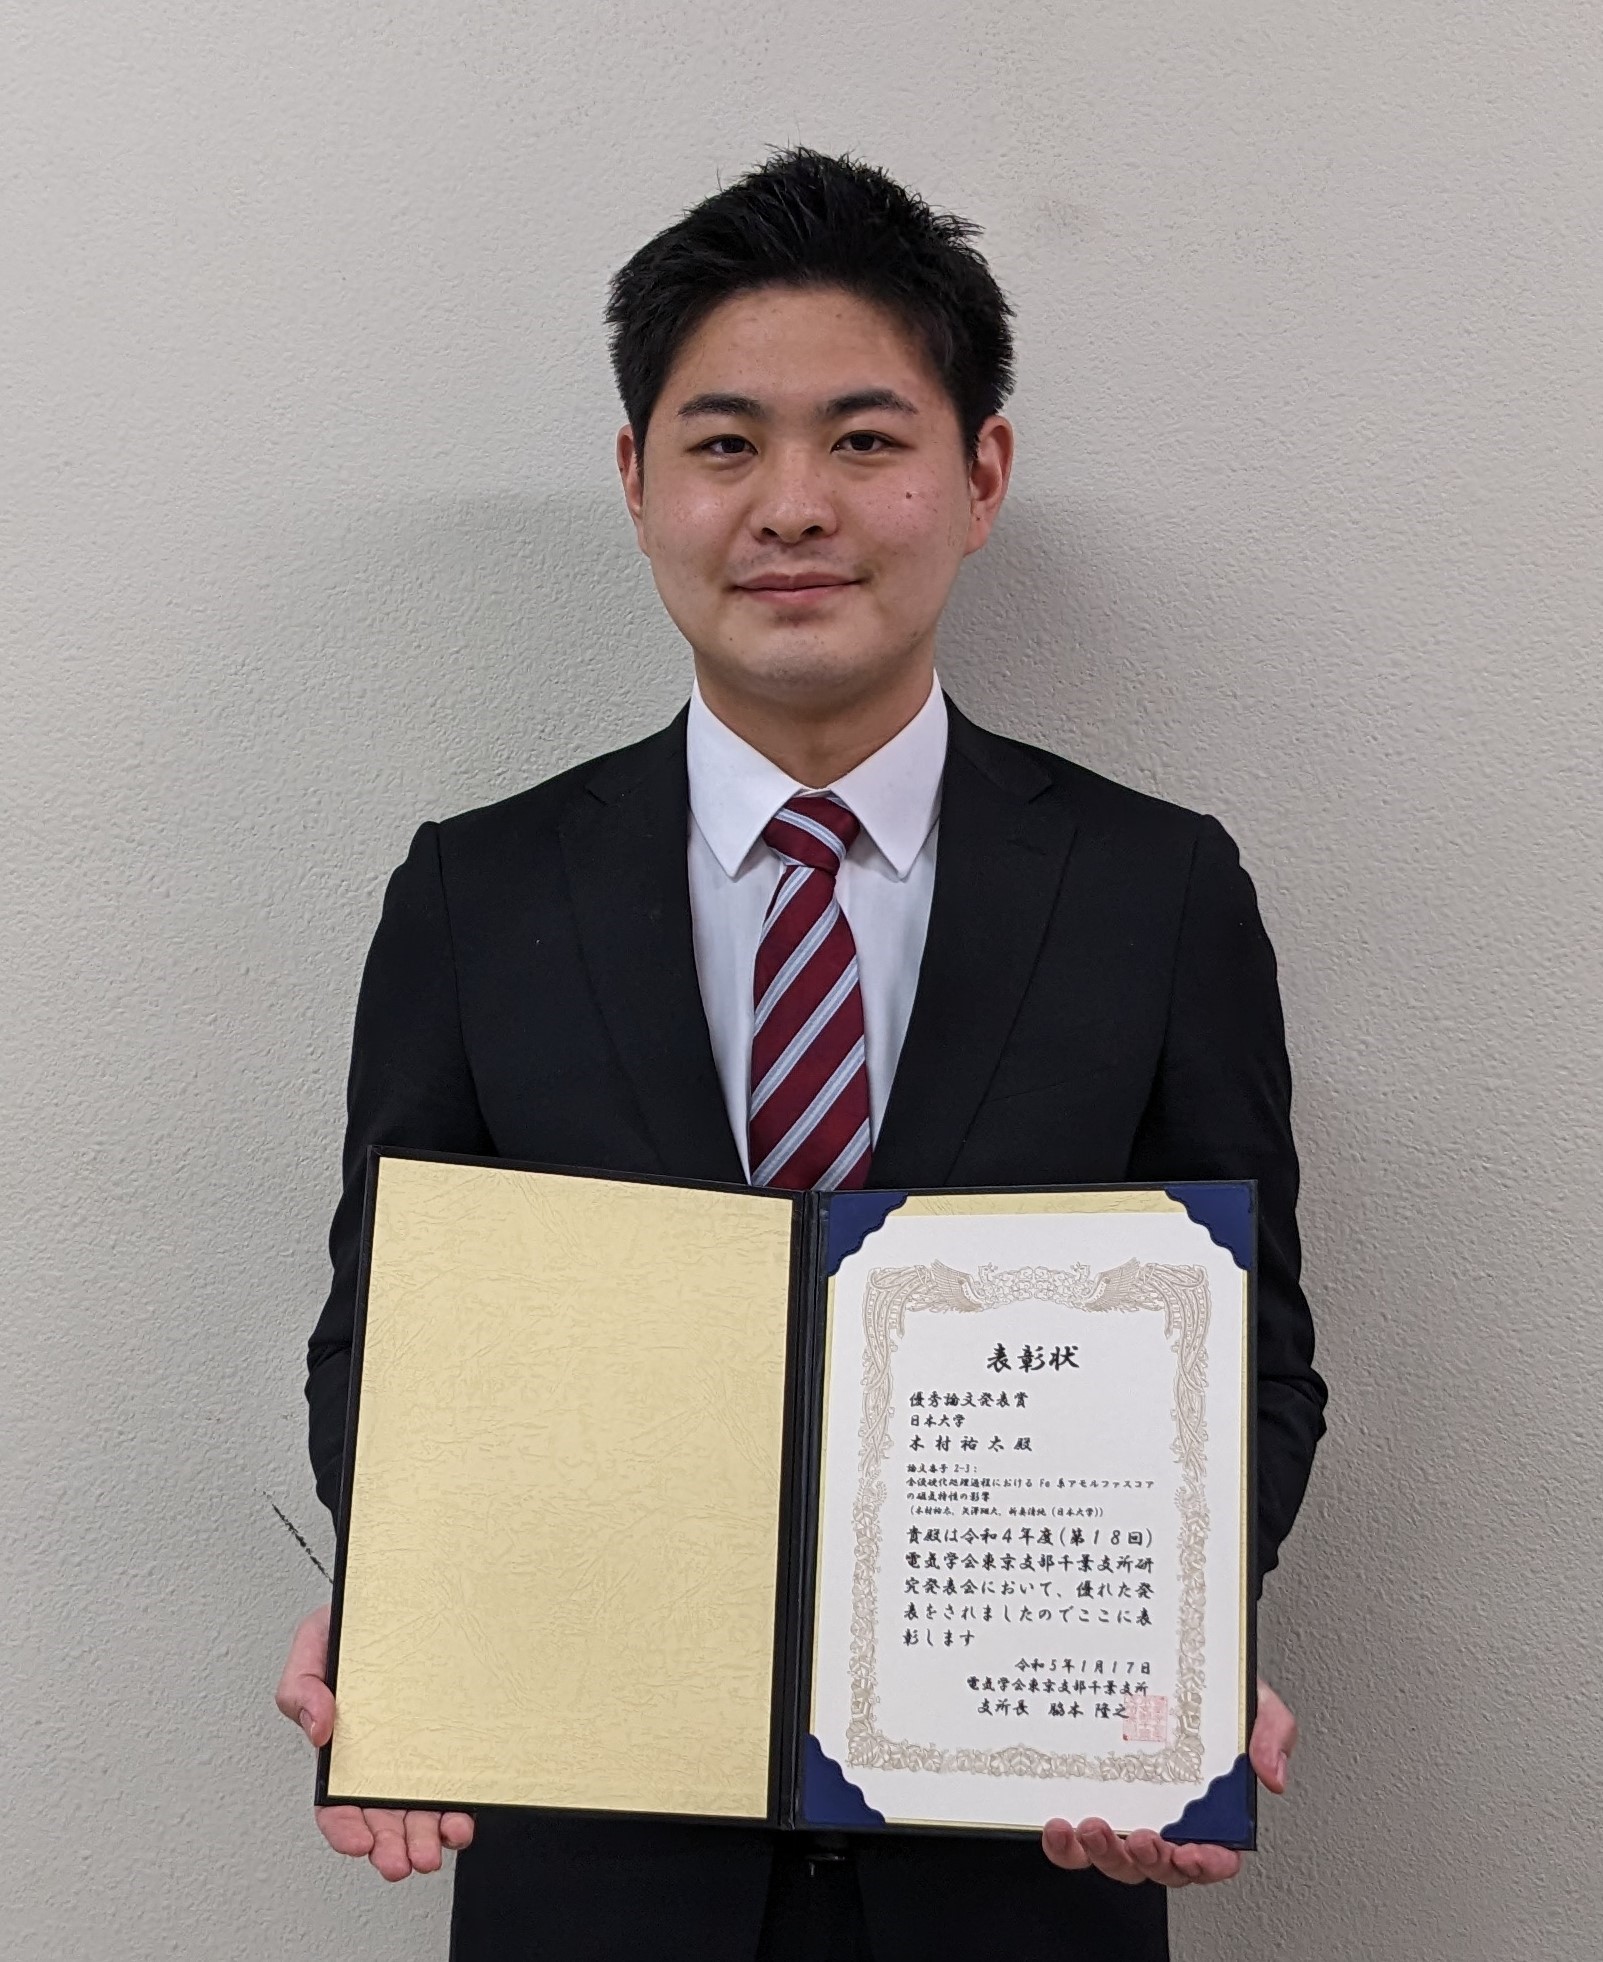 表彰状
優秀論文発表賞
日本大学
木村祐太殿
論文番号 2-3：
含浸硬化処理過程における Fe 系アモルファスコア
の磁気特性の影響
（木村祐太、矢澤翔大、新妻清純（日本大学））
貴殿は令和４年度(第１８回)
電気学会東京支部千葉支所研
究発表会において、優れた発
表をされましたのでここに表
彰します
令和５年１月１７日
電気学会東京支部千葉支所
支所長 脇本 隆之